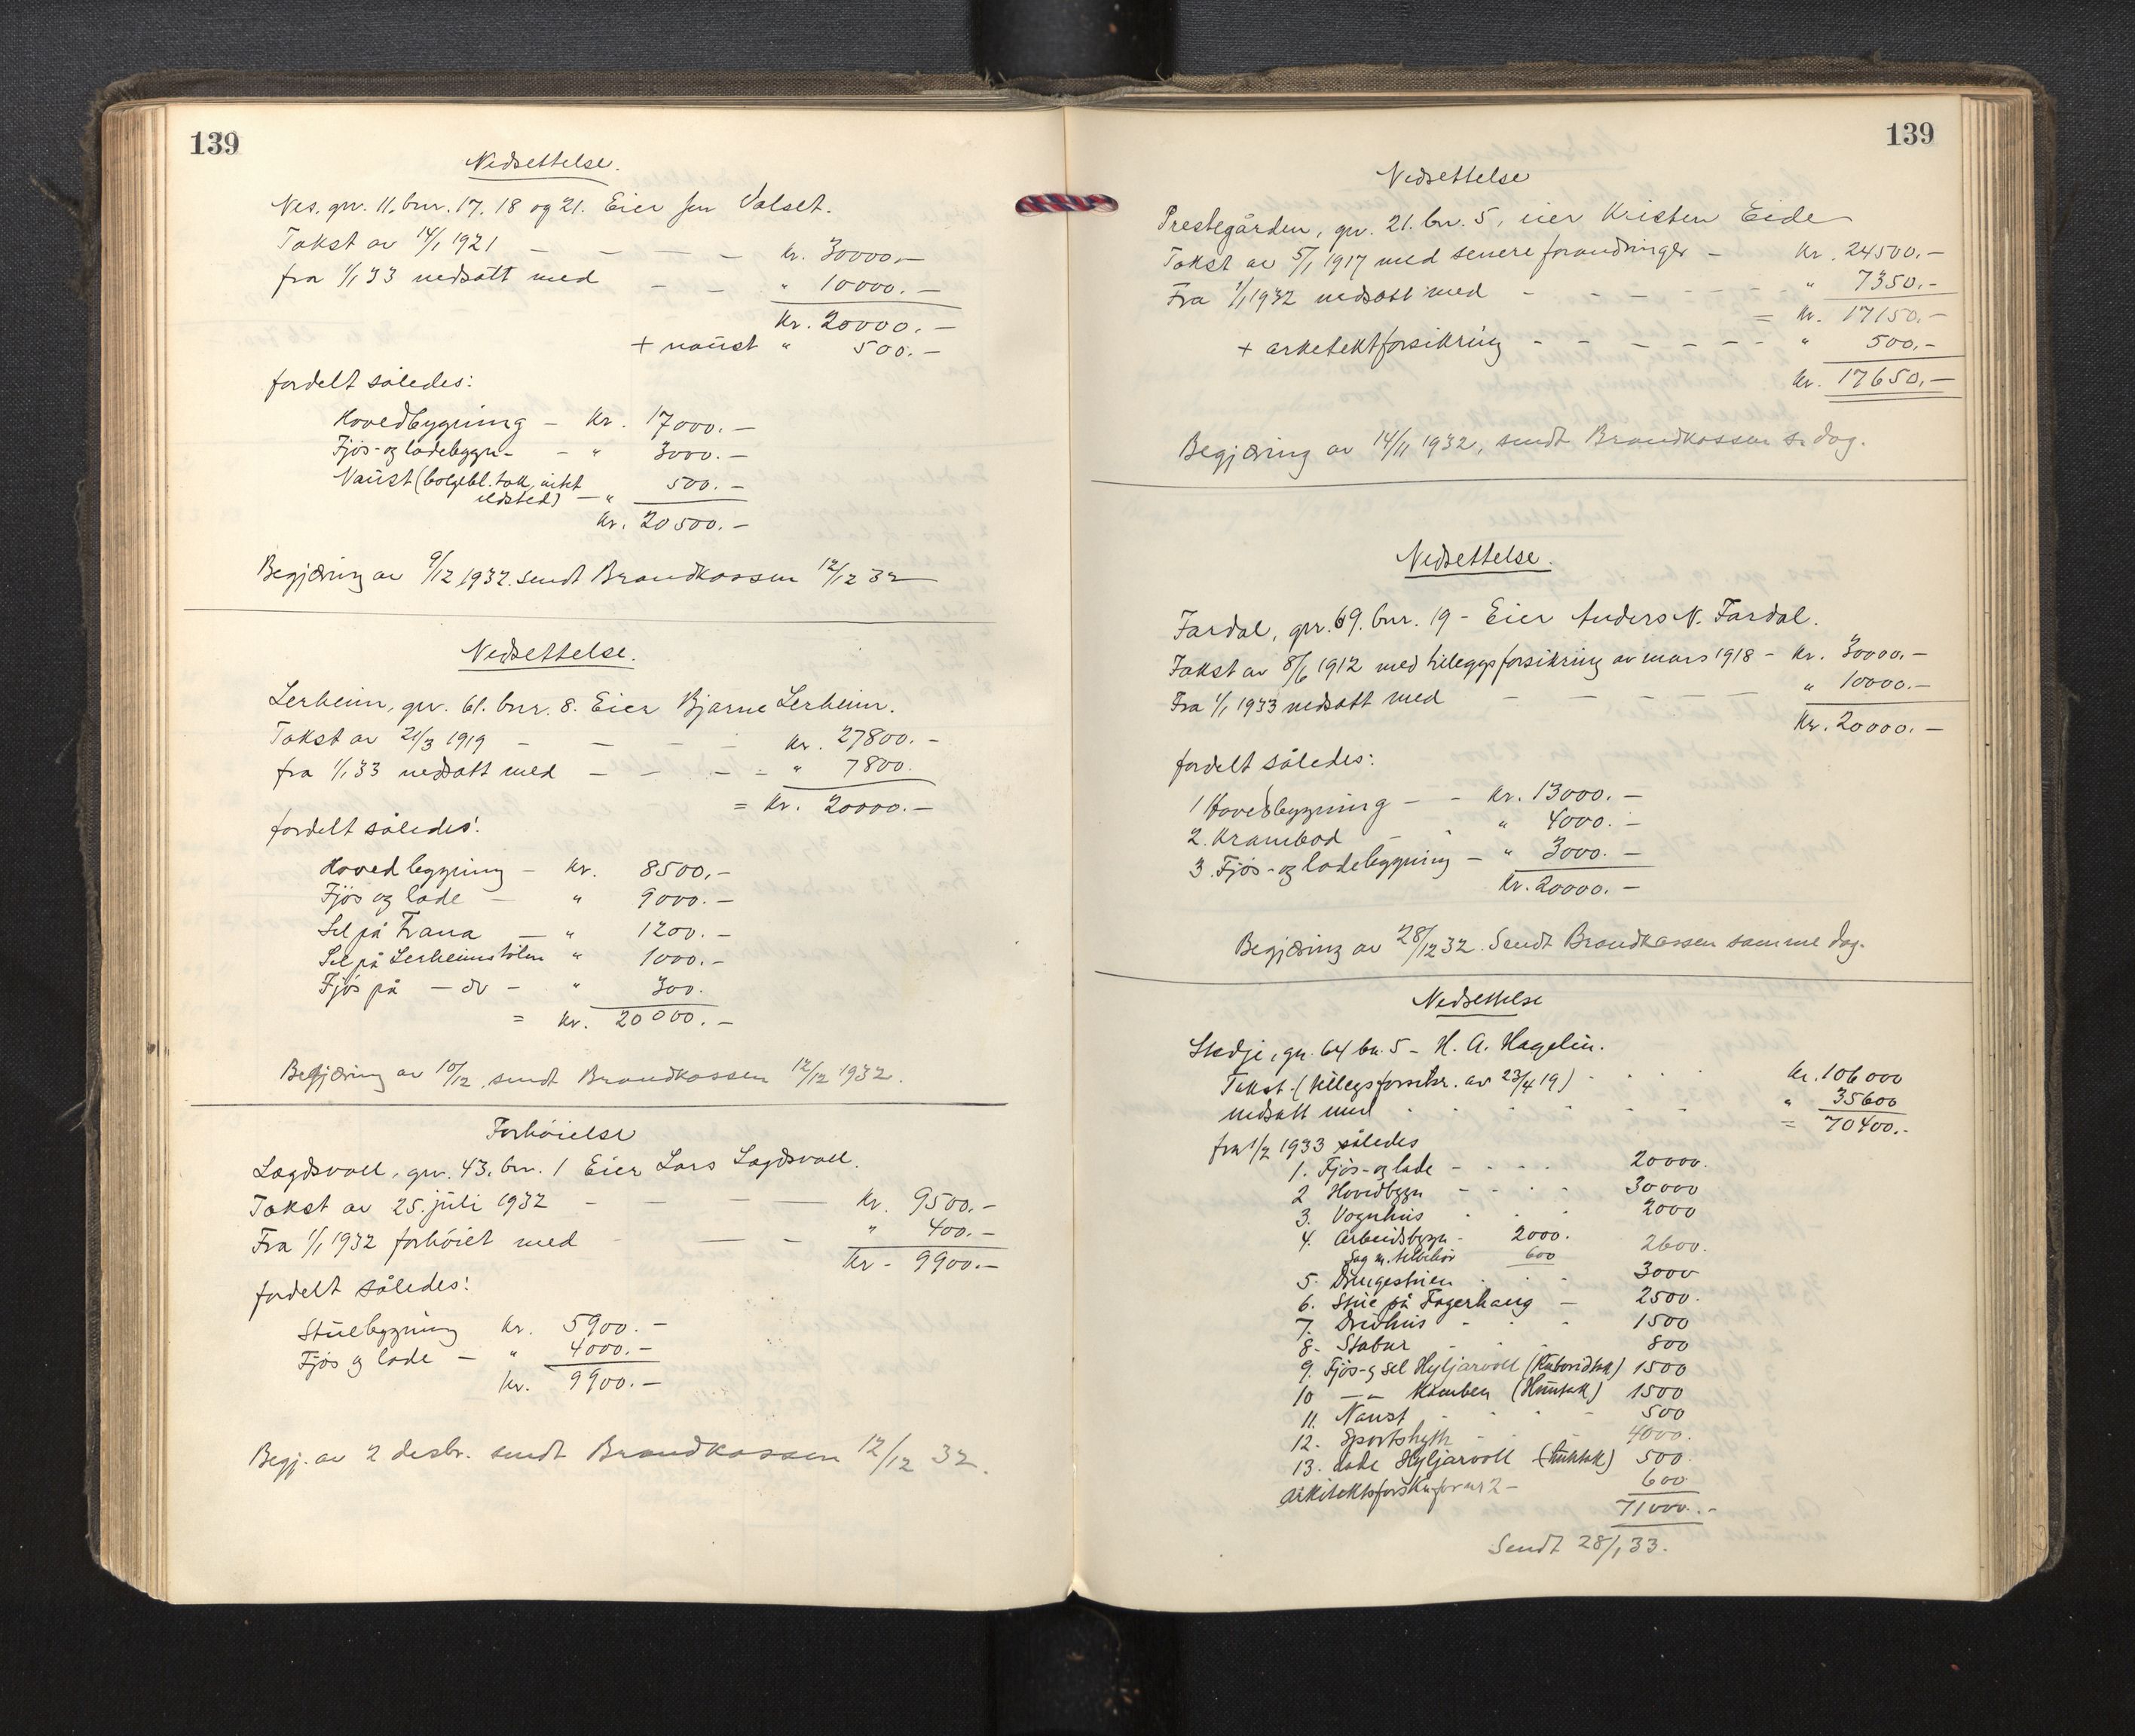 139
Nedsettelse.
Nes. gnr. 11. bnr. 17. 18 og 21. Eier Jon Valset.
Takst av 14/1 1921 — — — — kr. 30000.—
fra 1/1 33 nedsatt med — — " 10000.—
Kr. 20000.—
+ naust " 500.—
fordelt således:
Hovedbygning — Kr. 17000.—
Fjös- og ladebygn. — " 3000.—
Naust (bølgebl. tak, intet
ildsted) — " 500.—
Kr. 20500.—
Begjæring av 9/12 1932. sendt Brandkassen 12/12 32
Nedsettelse.
Lerheim, gnr. 61. bnr. 8. Eier Bjarne Lerheim.
Takst av 21/3 1919 — — — — kr. 27800.—
fra 1/1 33 nedsatt med — — — " 7800.
= Kr. 20000.—
fordelt således:
Hovedbygning — Kr. 8500.—
Fjös og lade — " 9000.—
Sel på Frana — " 1200.—
Sel på Lerheimstölen " 1000.—
Fjös på — do — " 300.
= Kr. 20000.—
Begjæring av 10/12, sendt Brandkassen 12/12 1932.
Forhöielse
Lagdsvoll, gnr. 43. bnr. 1 Eier Lars Lagdsvoll.
Takst av 25. juli 1932 — — — — Kr. 9500.—
Fra 1/1 1932 forhöiet med — — — " 400.—
Kr. 9900.—
fordelt således:
Stuebygning Kr. 5900.—
Fjös og lade — " 4000.—
Kr. 9900.—
Begj. av 2 desbr. sendt Brandkassen 12/12 32.
139
Nedsettelse
Prestegården, gnr. 21. bnr. 5, eier Kristen Eide
Takst av 5/1 1917 med senere forandringer — Kr. 24500.—
Fra 1/1 1932 nedsatt med — — — — — " 7350.—
= Kr. 17150.—
+ arkitektforsikring — — — — — " 500.—
Kr. 17650.—
Begjæring av 14/11 1932, sendt Brandkassen s. dag.
Nedsettelse.
Fardal, gnr. 69. bnr. 19 - Eier Anders N. Fardal.
Takst av 8/6 1912 med tilleggsforsikring av mars 1918 - Kr. 30000.—
Fra 1/1 1933 nedsatt med — — — — — " 10000.—
Kr. 20000.—
fordelt således:
1 Hovedbygning — — Kr. 13000.—
2. Krambod — — " 4000.—
3. Fjös- og ladebygning — " 3000.—
Kr. 20000.—
Begjæring av 28/12 32. Sendt Brandkassen samme dag.
Nedsettelse
Stedje, gn. 64 bn. 5 - H. A. Hagelin.
Takst (tilleggsforsikr. av 23/4 19) - - - - Kr. 106000
nedsatt med - - - - - - " 35600
= 70400.-
fra 1/2 1933 således
1. Fjös- og lade - - - - 20000.
2 Hovedbygn - - - - 30000
3. Vognhus - - - 2000
4. Arbeidsbygn - 2000. 2600.
Sag m. tilbehör 600
5. Drengestuen - - - 3000
6. Stue på Fagerhaug — 2500.
7. Drivhus - - - 1500
8. Stabur - - - 800
9. Fjös- og sel Hyljarvoll 1500
10 —"— (Hunntak) 1500
11. Naust - - - - 500
12. Sportshytte - - 4000.
13. Lade Hyljarvoll 500.
arkitektsforsikr. for nr 2 - 600
71000.-
Sendt 28/1 33.